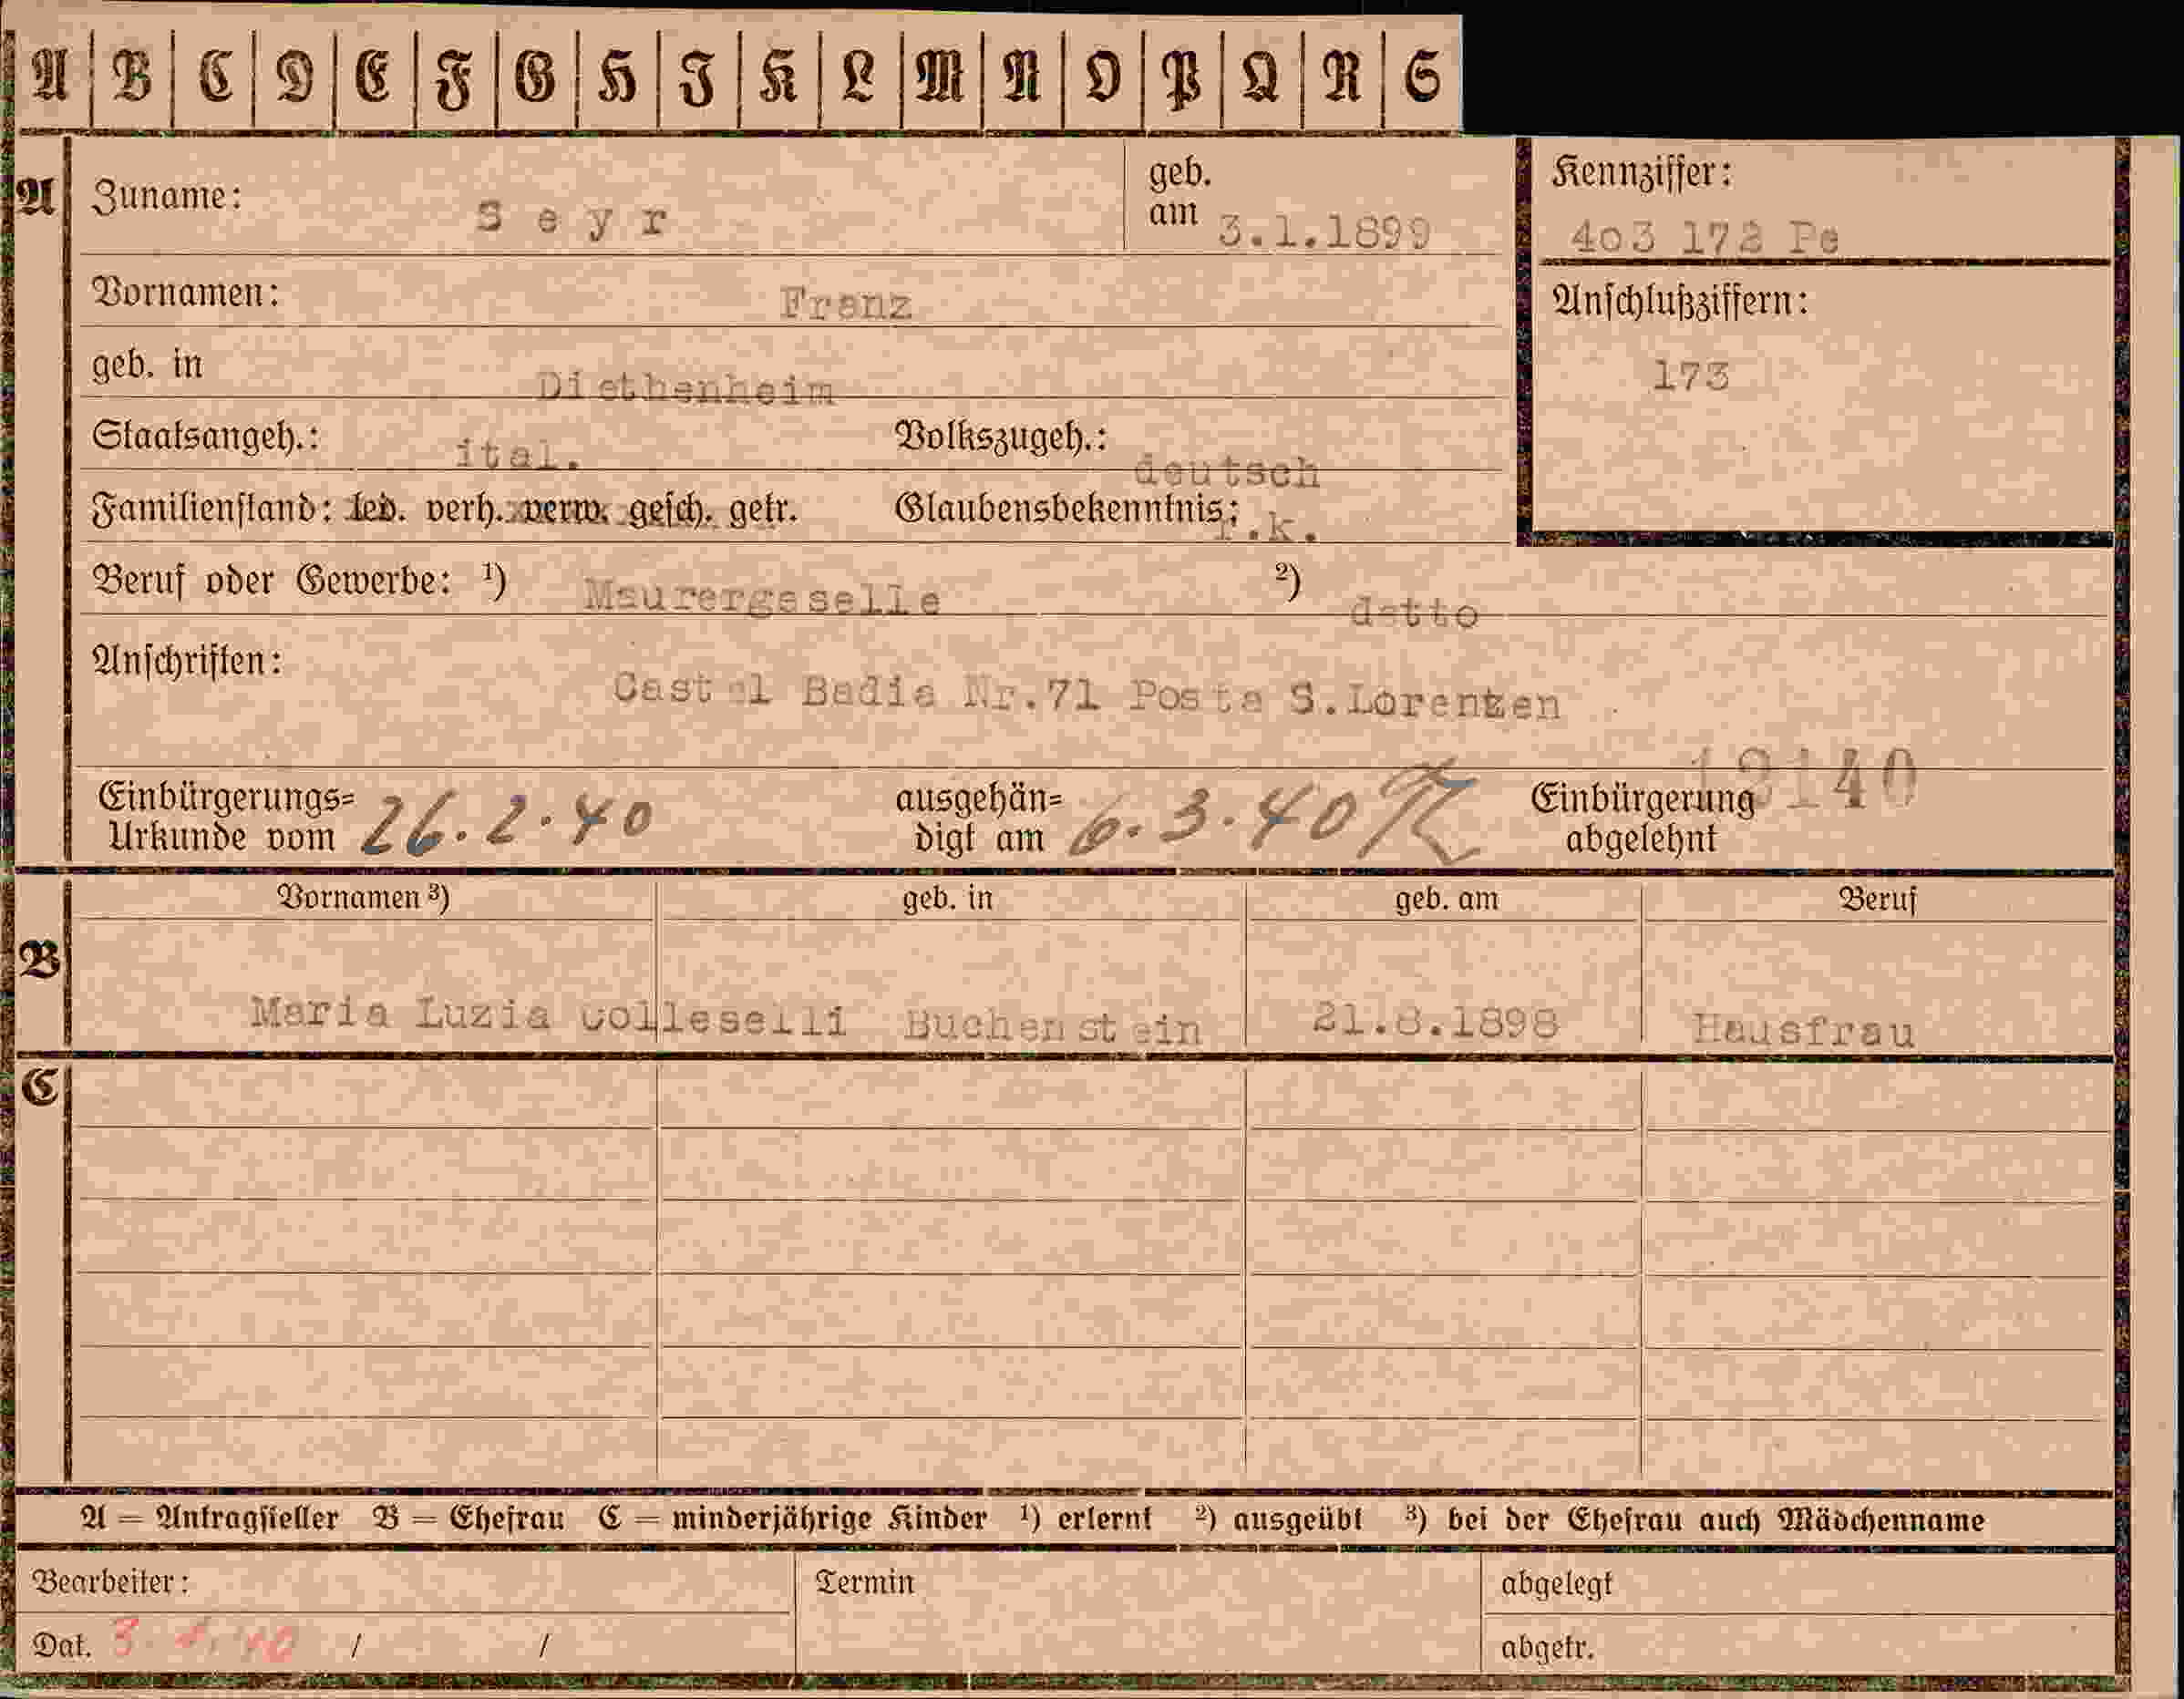 A B C D E F G H I K L M N O P Q R S
A Zuname: Seyr geb. am 3.1.1899 Kennziffer: 403 172 Pe
Vornamen: Franz Anschlußziffern:
geb. in Diethenheim 173
Staatsangeh.: ital. Volkszugeh.: deutsch
Familienstand: led. verh. verw. gesch. getr. Glaubensbekenntnis: r.k.
Beruf oder Gewerbe: ¹) Maurergeselle ²) detto
Anschriften: Castel Badia Nr.71 Posta S.Lorenzen
Einbürgerungs= Urkunde vom 26.2.40 ausgehän= digt am 6.3.40 Einbürgerung abgelehnt
Vornamen ³) geb. in geb. am Beruf
B Maria Luzia Colleselli Buchenstein 21.8.1898 Hausfrau
C
A = Antragsteller B = Ehefrau C = minderjährige Kinder ¹) erlernt ²) ausgeübt ³) bei der Ehefrau auch Mädchenname
Bearbeiter: Termin abgelegt
Dat. / / abgetr.